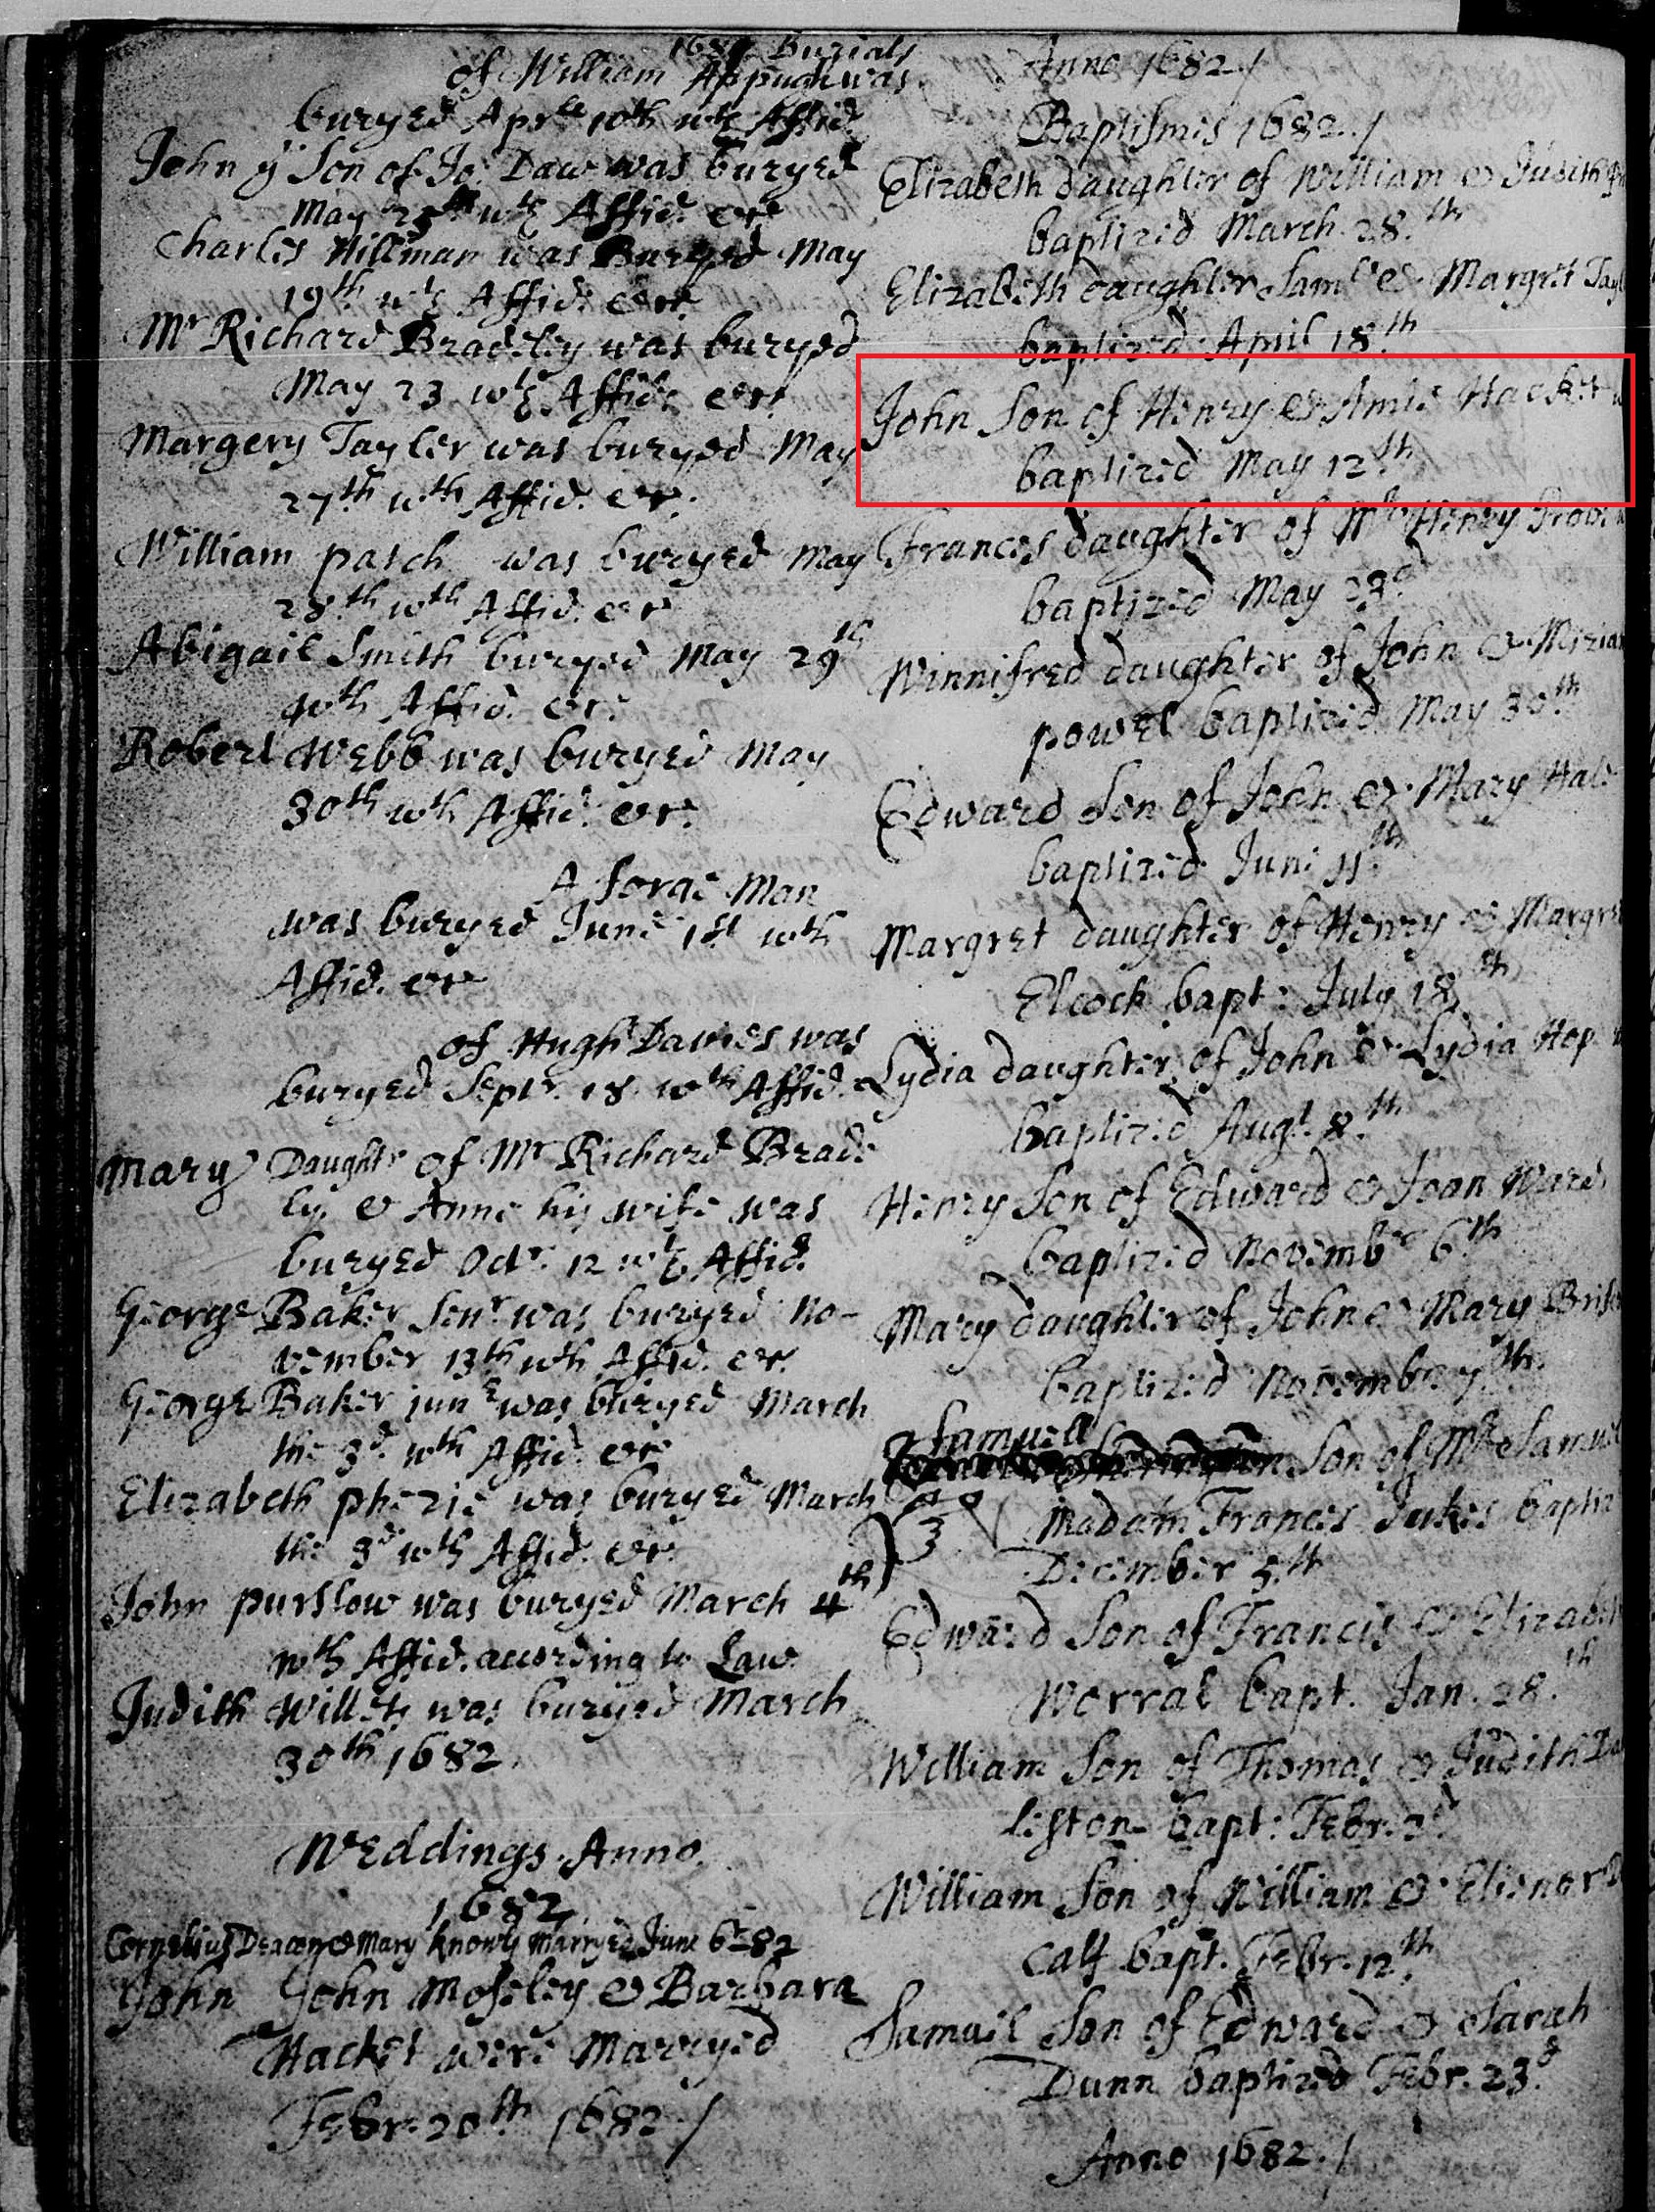 1682 Burials
of William Appugh was
buryed Apr 10th wth Affid.
John ye Son of Jo: Daw was buryed
May wth Affid. etr
Charles Hillman was Buryed May
19th wth Affid. etr.
Mr Richard Bradeley was buryed
May 23 wth Affid. etr.
Margery Tayler was buryed May
27th wth Affid. etr.
William patch was buryed May
28th wth Affid. etr
Abigail Smith buryed May 29th
wth Affid. etr.
Robert Webb was buryed May
30th wth Affid. etr.
A forge Man
was buryed June 1st wth
Affid. etr
of Hugh Davies was
buryed Septr. 18 wth Affid.
Mary Daughtr of Mr Richard Brade
ly & Anne his wife was
buryed Octr. 12 wth Affid.
George Baker Senr was buryed No-
vember 13th wth Affid. etr.
George Baker junr was buryed March
the 3d. wth Affid. etr
Elizabeth was buryed March
the 3d wth Affid. etr.
John purslow was buryed March 4th
wth Affid. according to Law
Judith Willets was buryed March
30th 1682.
Weddings Anno
1682
Cornelius & Mary Marryed June 6 82
John John Moseley & Barbara
Hacket were Marryed
Febr. 20th 1682./
Anno 1682./
Baptismes 1682./
Elizabeth daughter of William & Judith
baptized March 28.th
Elizabeth daughter Saml & Margret
baptized April 18.th
John Son of Henry & Amie Hacket
baptized May 12th
Frances daughter of Mr Henry
baptized May 23d
Winnifred daughter of John & Miriam
powel baptized May 30th
Edward Son of John & Mary
baptized June 11th
Margret daughter of Henry & Margret
Elcock bapt: July 18th
Lydia daughter of John & Lydia Hop
baptized Augt. 8.th
Henry Son of Edward & Joan Ward
baptized Novembr 6th
Mary daughter of John & Mary
baptized Novembr 7th.
Samuell
Son of Mr Samuel
3 Madam Frances Jukes baptiz
December 5th
Edward Son of Francis & Elizabeth
Worral bapt. Jan. 28.th
William Son of Thomas & Judith
liston bapt: Febr.
William Son of William & Elienor
Calf bapt. Febr. 12th
Samuil Son of Edward & Sarah
Dunn baptized Febr. 23d
Anno 1682./